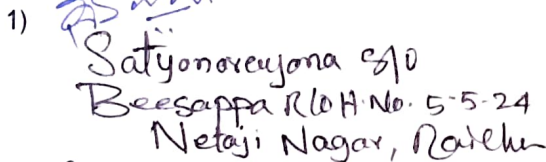 1)
Satyonoreyona S/O
Beesappa R/O H.No. 5-5-24
Netaji Nagar,